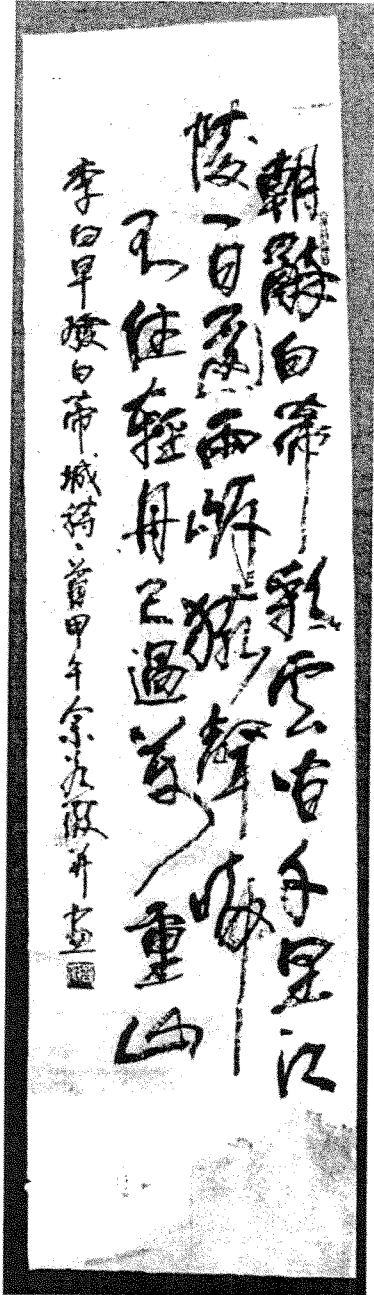 朝辭白帝彩雲間千里江
陵一日還兩岸猿聲啼
不住輕舟已過萬重山
李白早發白帝城詩一首甲午 并書